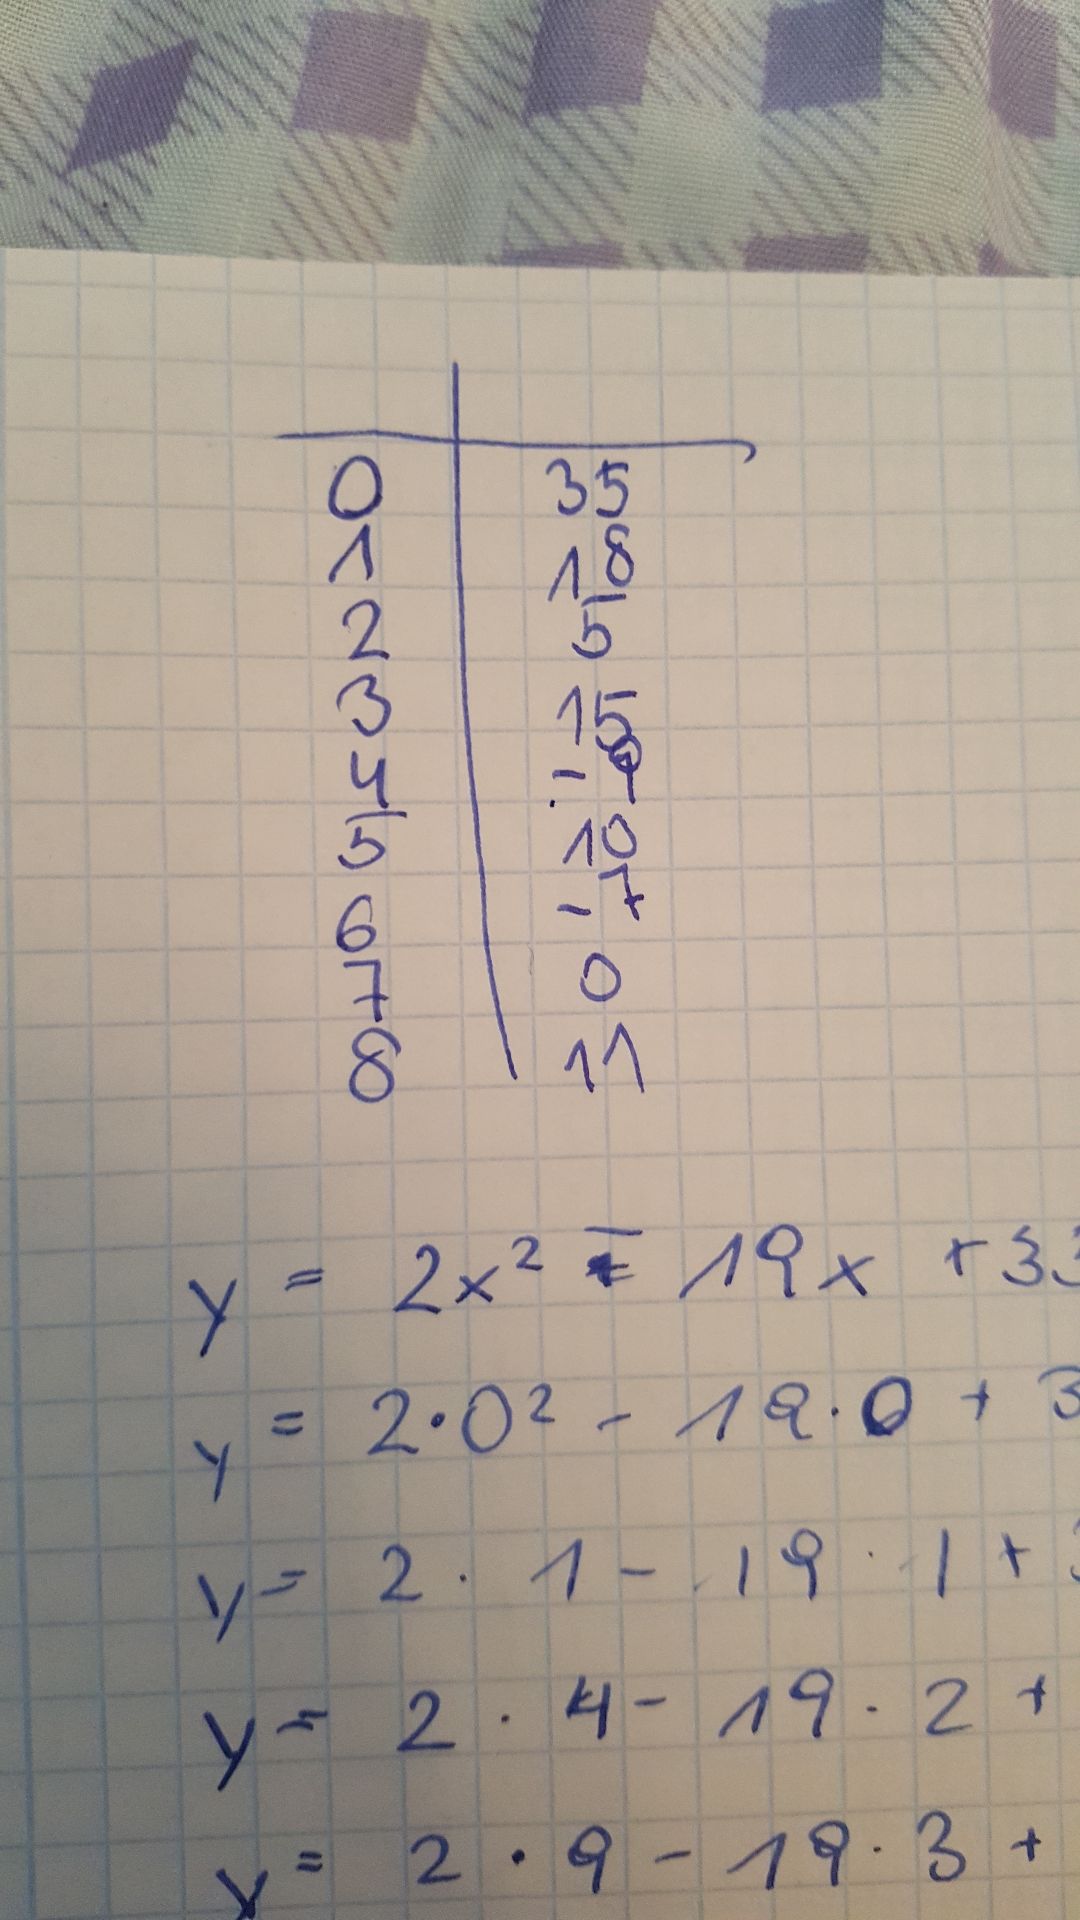 0 35
1 18
2 5
3 15
4 -9
5 10
6 -7
7 0
8 11
y = 2x² - 19x + 33
y = 2·0² - 19·0 + 3
y = 2 · 1 - 19 · 1 +
y = 2 · 4 - 19 · 2 +
y = 2 · 9 - 19 · 3 +